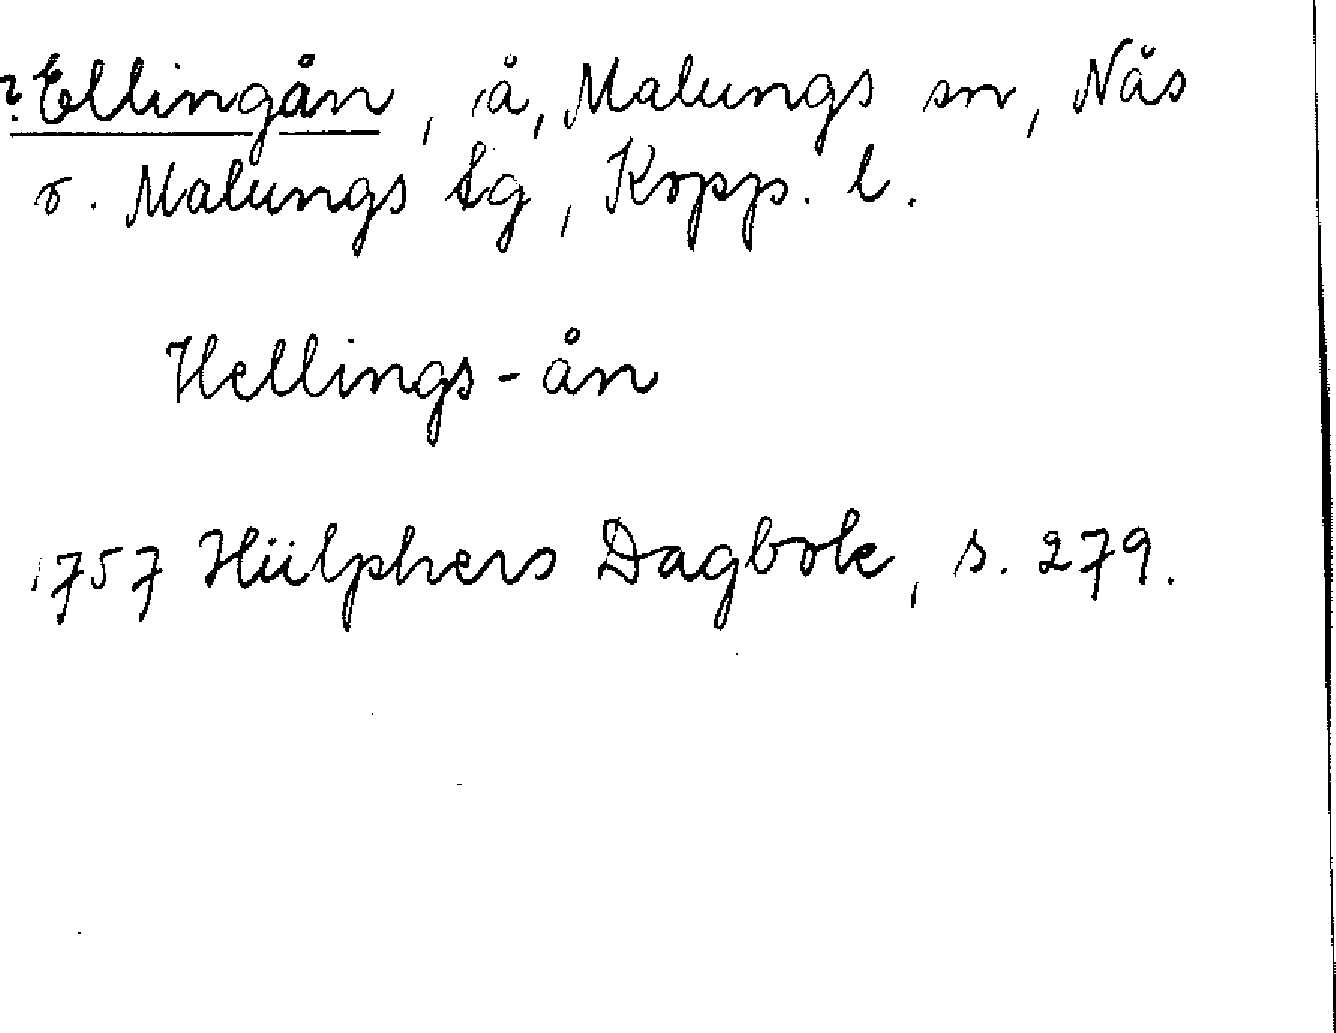 ?Ellingån, å, Malungs sn, Nås
o. Malungs tg, Kopp. l.
Hellings-ån
1757 Hülphers Dagbok, s. 279.